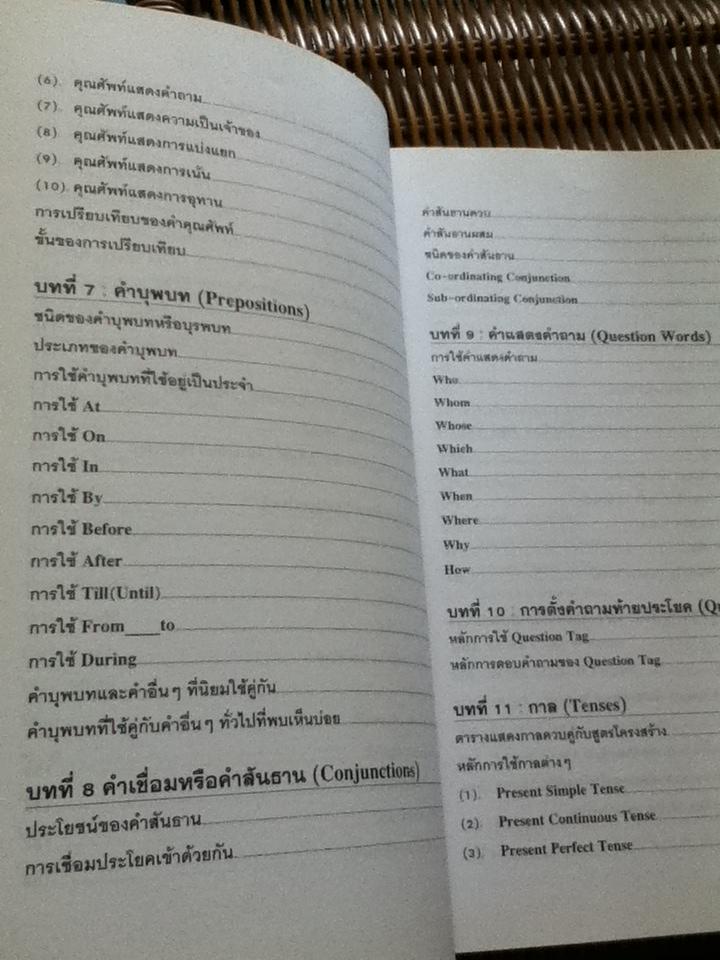 (6). คุณศัพท์แสดงคำถาม
(7). คุณศัพท์แสดงความเป็นเจ้าของ
(8) คุณศัพท์แสดงการแบ่งแยก
(9). คุณศัพท์แสดงการเน้น
(10). คุณศัพท์แสดงการอุทาน
การเปรียบเทียบของคำคุณศัพท์
ขั้นของการเปรียบเทียบ
บทที่ 7 : คำบุพบท (Prepositions)
ชนิดของคำบุพบทหรือบุรพบท
ประเภทของคำบุพบท
การใช้คำบุพบทที่ใช้อยู่เป็นประจำ
การใช้ At
การใช้ On
การใช้ In
การใช้ By
การใช้ Before
การใช้ After
การใช้ Till(Until)
การใช้ From____to
การใช้ During
คำบุพบทและคำอื่นๆ ที่นิยมใช้คู่กัน
คำบุพบทที่ใช้คู่กับคำอื่นๆ ทั่วไปที่พบเห็นบ่อย
บทที่ 8 คำเชื่อมหรือคำสันธาน (Conjunctions)
ประโยชน์ของคำสันธาน
การเชื่อมประโยคเข้าด้วยกัน
คำสันธานควบ
คำสันธานผสม
ชนิดของคำสันธาน
Co-ordinating Conjunction
Sub-ordinating Conjunction
บทที่ 9 : คำแสดงคำถาม (Question Words)
การใช้คำแสดงคำถาม
Who
Whom
Whose
Which
What
When
Where
Why
How
บทที่ 10 : การตั้งคำถามท้ายประโยค (Qu
หลักการใช้ Question Tag
หลักการตอบคำถามของ Question Tag
บทที่ 11 : กาล (Tenses)
ตารางแสดงกาลควบคู่กับสูตรโครงสร้าง
หลักการใช้กาลต่างๆ
(1). Present Simple Tense
(2). Present Continuous Tense
(3). Present Perfect Tense